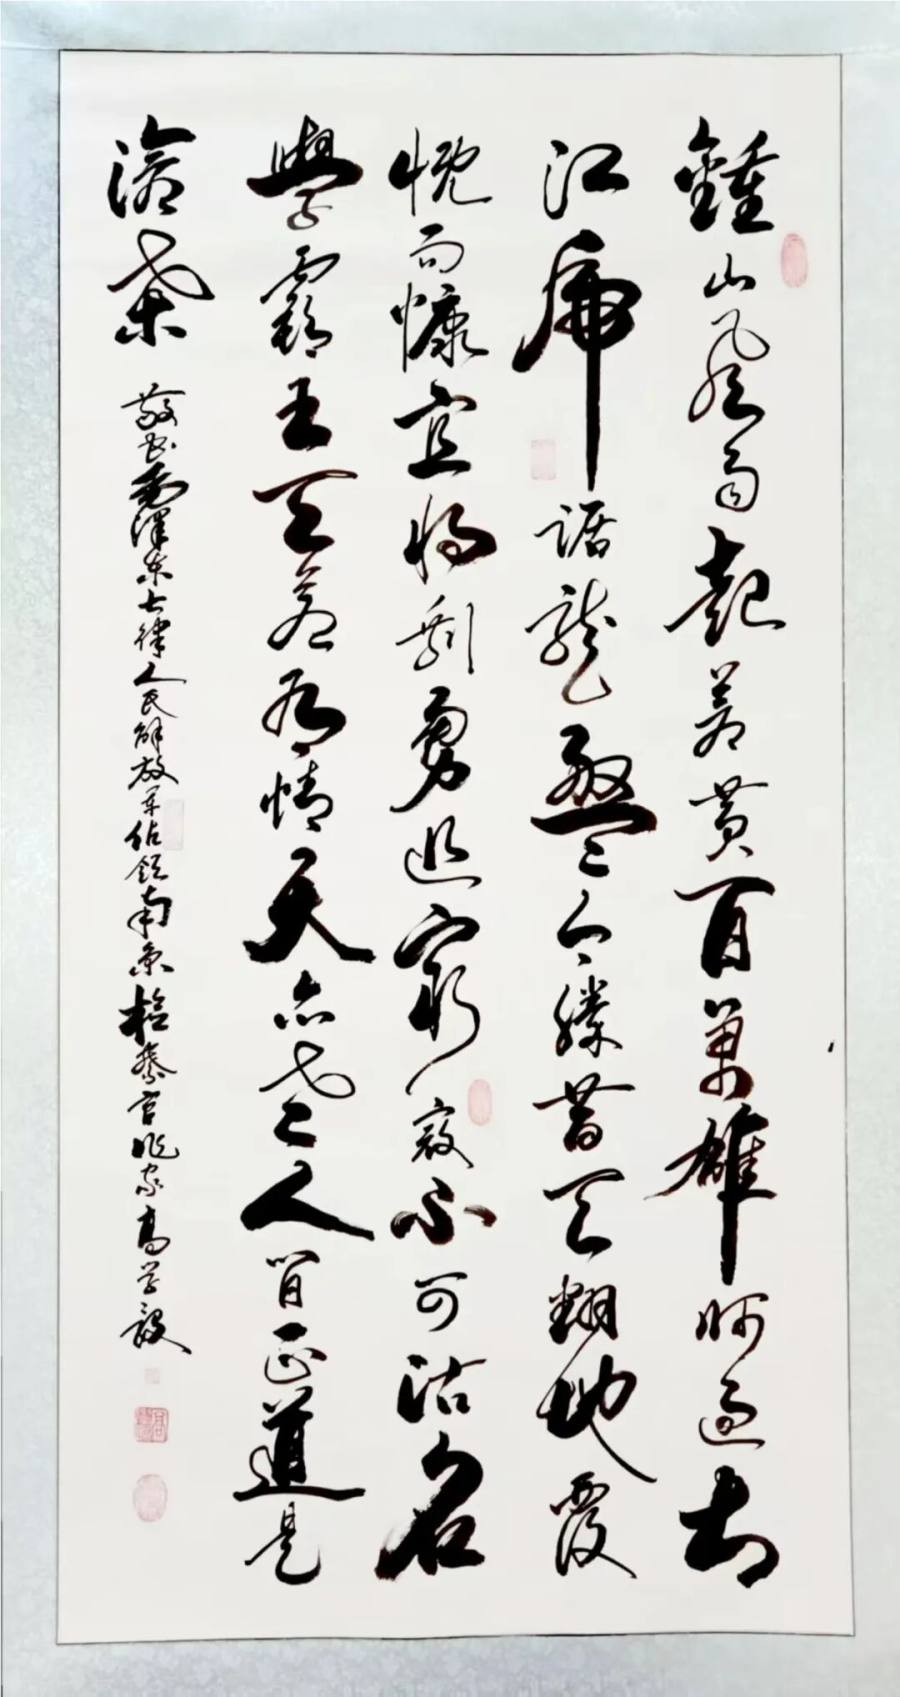 鍾山風雨起蒼黄百萬雄師過大
江虎踞龍盤今勝昔天翻地覆
慨而慷宜將剩勇追窮寇不可沽名
學霸王天若有情天亦老人間正道是
滄桑 敬书毛澤东七律人民解放军佔领南京 高学